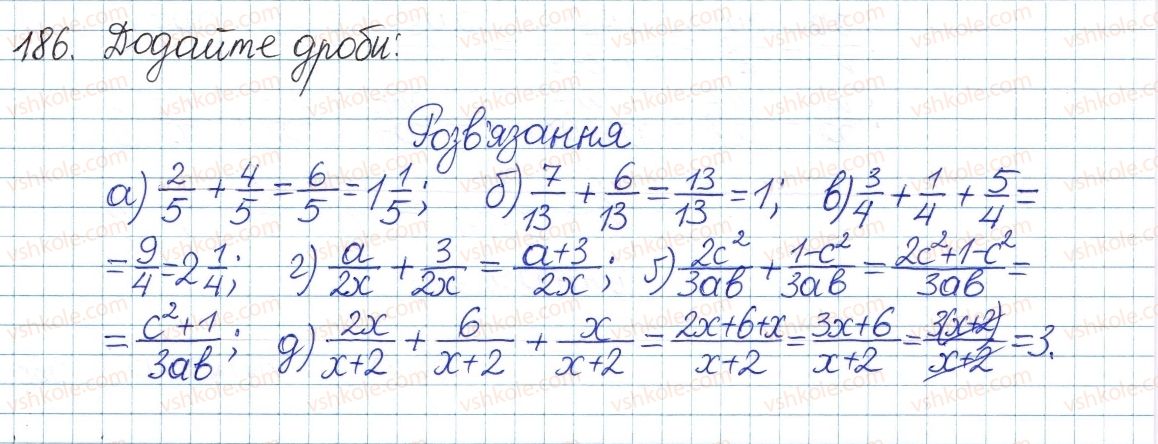 186. Додайте дроби:
Розв'язання
а) 2/5 + 4/5 = 6/5 = 1 1/5; б) 7/13 + 6/13 = 13/13 = 1; в) 3/4 + 1/4 + 5/4 =
= 9/4 = 2 1/4; г) a/2x + 3/2x = (a+3)/2x; ґ) 2c²/3ab + (1-c²)/3ab = (2c²+1-c²)/3ab =
= (c²+1)/3ab; д) 2x/(x+2) + 6/(x+2) + x/(x+2) = (2x+6+x)/(x+2) = (3x+6)/(x+2) = 3(x+2)/(x+2) = 3.